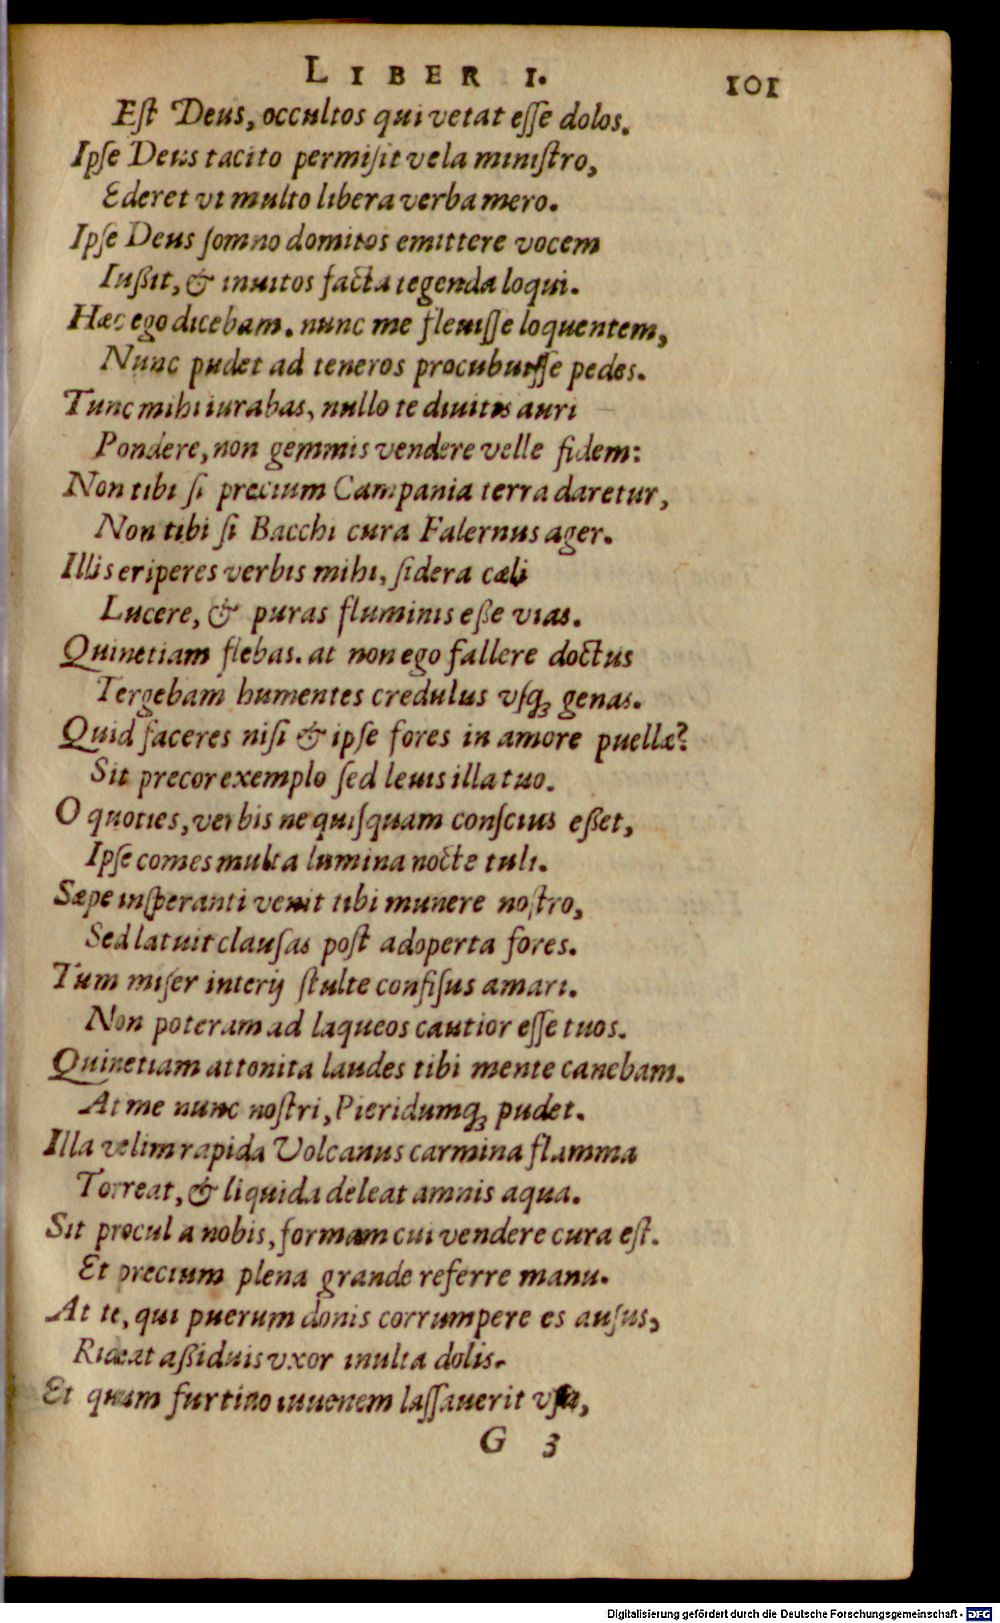 LIBER I. 101
Est Deus, occultos qui vetat esse dolos.
Ipse Deus tacito permisit vela ministro,
Ederet vt multo libera verba mero.
Ipse Deus somno domitos emittere vocem
Iußit, & inuitos facta tegenda loqui.
Hæc ego dicebam. nunc me fleuisse loquentem,
Nunc pudet ad teneros procubuisse pedes.
Tunc mihi iurabas, nullo te diuitis auri
Pondere, non gemmis vendere velle fidem:
Non tibi si precium Campania terra daretur,
Non tibi si Bacchi cura Falernus ager.
Illis eriperes verbis mihi, sidera cæli
Lucere, & puras fluminis eße vias.
Quinetiam flebas. at non ego fallere doctus
Tergebam humentes credulus vsq; genas.
Quid faceres nisi & ipse fores in amore puellæ?
Sit precor exemplo sed leuis illa tuo.
O quoties, verbis ne quisquam conscius eßet,
Ipse comes multa lumina nocte tuli.
Sæpe insperanti venit tibi munere nostro,
Sed latuit clausas post adoperta fores.
Tum miser interij stulte confisus amari.
Non poteram ad laqueos cautior esse tuos.
Quinetiam attonita laudes tibi mente canebam.
At me nunc nostri, Pieridumq; pudet.
Illa velim rapida Volcanus carmina flamma
Torreat, & liquida deleat amnis aqua.
Sit procul a nobis, formam cui vendere cura est.
Et precium plena grande referre manu.
At te, qui puerum donis corrumpere es ausus,
Rideat aßiduis vxor inulta dolis.
Et quum furtino iuuenem lassauerit vsu,
G 3
Digitalisierung gefördert durch die Deutsche Forschungsgemeinschaft - DFG